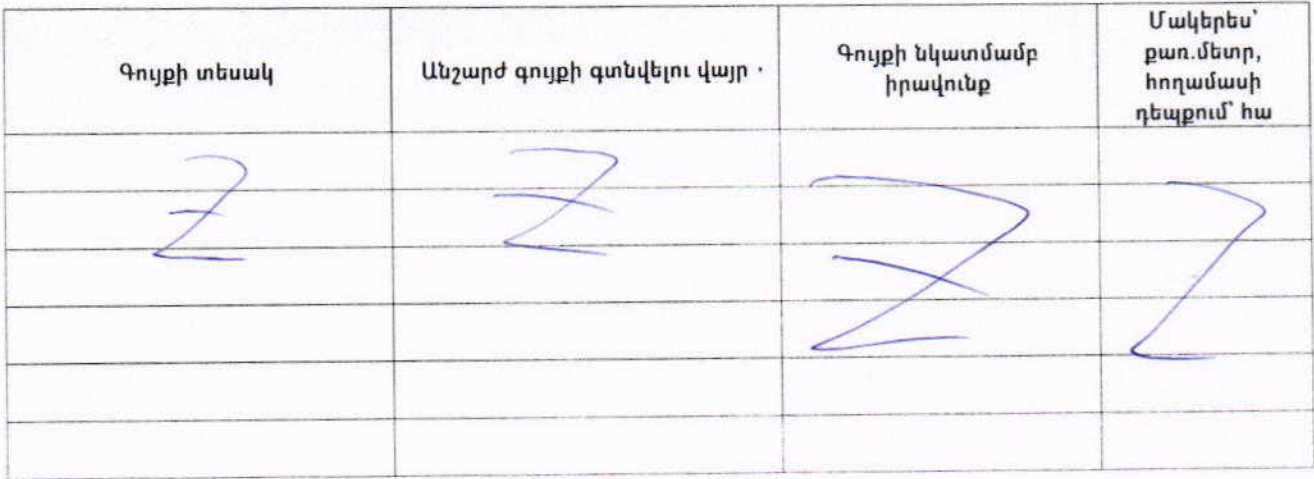 Գույքի տեսակ
Անշարժ գույքի գտնվելու վայր ·
Գույքի նկատմամբ
իրավունք
Մակերես՝
քառ.մետր,
հողամասի
դեպքում՝ հա
Z
Z
Z
Z